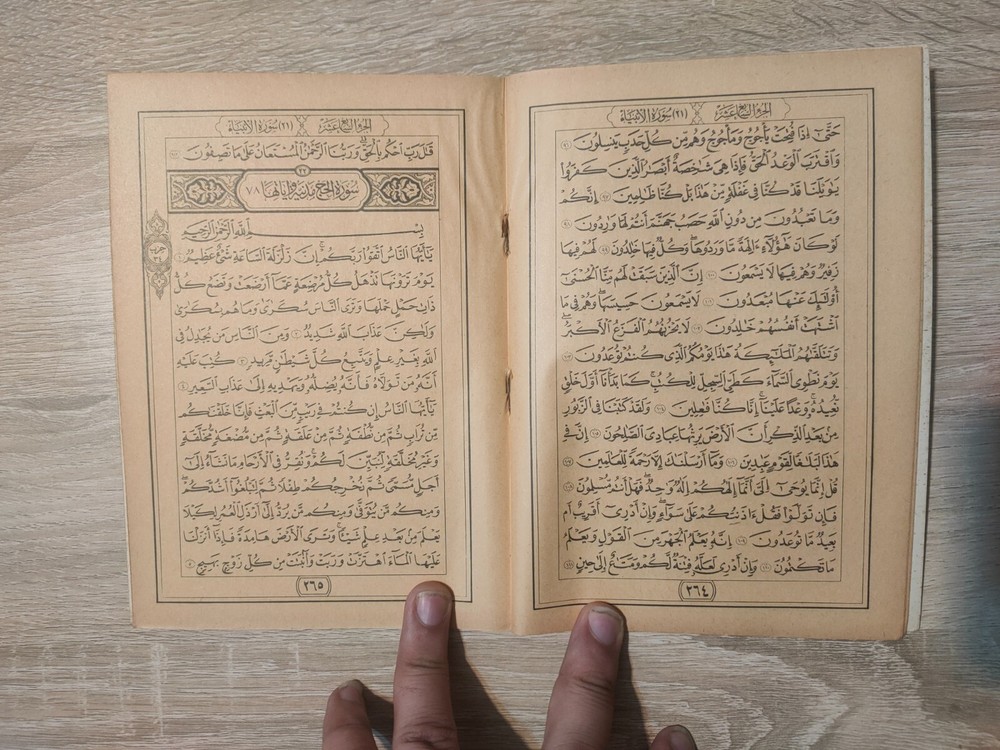 الجزء السابع عشر (٢١) سورة الأنبياء
حَتَّىٰٓ إِذَا فُتِحَتْ يَأْجُوجُ وَمَأْجُوجُ وَهُم مِّن كُلِّ حَدَبٍ يَنسِلُونَ ۝٩٦
وَٱقْتَرَبَ ٱلْوَعْدُ ٱلْحَقُّ فَإِذَا هِىَ شَٰخِصَةٌ أَبْصَٰرُ ٱلَّذِينَ كَفَرُوا۟
يَٰوَيْلَنَا قَدْ كُنَّا فِى غَفْلَةٍ مِّنْ هَٰذَا بَلْ كُنَّا ظَٰلِمِينَ ۝٩٧ إِنَّكُمْ
وَمَا تَعْبُدُونَ مِن دُونِ ٱللَّهِ حَصَبُ جَهَنَّمَ أَنتُمْ لَهَا وَٰرِدُونَ ۝٩٨
لَوْ كَانَ هَٰٓؤُلَآءِ ءَالِهَةً مَّا وَرَدُوهَا وَكُلٌّ فِيهَا خَٰلِدُونَ ۝٩٩ لَهُمْ فِيهَا
زَفِيرٌ وَهُمْ فِيهَا لَا يَسْمَعُونَ ۝١٠٠ إِنَّ ٱلَّذِينَ سَبَقَتْ لَهُم مِّنَّا ٱلْحُسْنَىٰٓ
أُو۟لَٰٓئِكَ عَنْهَا مُبْعَدُونَ ۝١٠١ لَا يَسْمَعُونَ حَسِيسَهَا وَهُمْ فِى مَا
ٱشْتَهَتْ أَنفُسُهُمْ خَٰلِدُونَ ۝١٠٢ لَا يَحْزُنُهُمُ ٱلْفَزَعُ ٱلْأَكْبَرُ
وَتَتَلَقَّىٰهُمُ ٱلْمَلَٰٓئِكَةُ هَٰذَا يَوْمُكُمُ ٱلَّذِى كُنتُمْ تُوعَدُونَ ۝١٠٣
يَوْمَ نَطْوِى ٱلسَّمَآءَ كَطَىِّ ٱلسِّجِلِّ لِلْكُتُبِ كَمَا بَدَأْنَآ أَوَّلَ خَلْقٍ
نُّعِيدُهُۥ وَعْدًا عَلَيْنَآ إِنَّا كُنَّا فَٰعِلِينَ ۝١٠٤ وَلَقَدْ كَتَبْنَا فِى ٱلزَّبُورِ
مِنۢ بَعْدِ ٱلذِّكْرِ أَنَّ ٱلْأَرْضَ يَرِثُهَا عِبَادِىَ ٱلصَّٰلِحُونَ ۝١٠٥ إِنَّ فِى
هَٰذَا لَبَلَٰغًا لِّقَوْمٍ عَٰبِدِينَ ۝١٠٦ وَمَآ أَرْسَلْنَٰكَ إِلَّا رَحْمَةً لِّلْعَٰلَمِينَ ۝١٠٧
قُلْ إِنَّمَا يُوحَىٰٓ إِلَىَّ أَنَّمَآ إِلَٰهُكُمْ إِلَٰهٌ وَٰحِدٌ فَهَلْ أَنتُم مُّسْلِمُونَ ۝١٠٨
فَإِن تَوَلَّوْا۟ فَقُلْ ءَاذَنتُكُمْ عَلَىٰ سَوَآءٍ وَإِنْ أَدْرِىٓ أَقَرِيبٌ أَم
بَعِيدٌ مَّا تُوعَدُونَ ۝١٠٩ إِنَّهُۥ يَعْلَمُ ٱلْجَهْرَ مِنَ ٱلْقَوْلِ وَيَعْلَمُ
مَا تَكْتُمُونَ ۝١١٠ وَإِنْ أَدْرِى لَعَلَّهُۥ فِتْنَةٌ لَّكُمْ وَمَتَٰعٌ إِلَىٰ حِينٍ ۝١١١
٢٦٤
الجزء السابع عشر (٢١) سورة الأنبياء
قَٰلَ رَبِّ ٱحْكُم بِٱلْحَقِّ وَرَبُّنَا ٱلرَّحْمَٰنُ ٱلْمُسْتَعَانُ عَلَىٰ مَا تَصِفُونَ ۝١١٢
٢٢
سورة الحج مدنية وآياتها ٧٨
بِسْمِ ٱللَّهِ ٱلرَّحْمَٰنِ ٱلرَّحِيمِ
يَٰٓأَيُّهَا ٱلنَّاسُ ٱتَّقُوا۟ رَبَّكُمْ إِنَّ زَلْزَلَةَ ٱلسَّاعَةِ شَىْءٌ عَظِيمٌ ۝١
يَوْمَ تَرَوْنَهَا تَذْهَلُ كُلُّ مُرْضِعَةٍ عَمَّآ أَرْضَعَتْ وَتَضَعُ كُلُّ
ذَاتِ حَمْلٍ حَمْلَهَا وَتَرَى ٱلنَّاسَ سُكَٰرَىٰ وَمَا هُم بِسُكَٰرَىٰ
وَلَٰكِنَّ عَذَابَ ٱللَّهِ شَدِيدٌ ۝٢ وَمِنَ ٱلنَّاسِ مَن يُجَٰدِلُ فِى
ٱللَّهِ بِغَيْرِ عِلْمٍ وَيَتَّبِعُ كُلَّ شَيْطَٰنٍ مَّرِيدٍ ۝٣ كُتِبَ عَلَيْهِ
أَنَّهُۥ مَن تَوَلَّاهُ فَأَنَّهُۥ يُضِلُّهُۥ وَيَهْدِيهِ إِلَىٰ عَذَابِ ٱلسَّعِيرِ ۝٤
يَٰٓأَيُّهَا ٱلنَّاسُ إِن كُنتُمْ فِى رَيْبٍ مِّنَ ٱلْبَعْثِ فَإِنَّا خَلَقْنَٰكُم
مِّن تُرَابٍ ثُمَّ مِن نُّطْفَةٍ ثُمَّ مِنْ عَلَقَةٍ ثُمَّ مِن مُّضْغَةٍ مُّخَلَّقَةٍ
وَغَيْرِ مُخَلَّقَةٍ لِّنُبَيِّنَ لَكُمْ وَنُقِرُّ فِى ٱلْأَرْحَامِ مَا نَشَآءُ إِلَىٰٓ
أَجَلٍ مُّسَمًّى ثُمَّ نُخْرِجُكُمْ طِفْلًا ثُمَّ لِتَبْلُغُوٓا۟ أَشُدَّكُمْ
وَمِنكُم مَّن يُتَوَفَّىٰ وَمِنكُم مَّن يُرَدُّ إِلَىٰٓ أَرْذَلِ ٱلْعُمُرِ لِكَيْلَا
يَعْلَمَ مِنۢ بَعْدِ عِلْمٍ شَيْـًٔا وَتَرَى ٱلْأَرْضَ هَامِدَةً فَإِذَآ أَنزَلْنَا
عَلَيْهَا ٱلْمَآءَ ٱهْتَزَّتْ وَرَبَتْ وَأَنۢبَتَتْ مِن كُلِّ زَوْجٍۭ بَهِيجٍ ۝٥
٢٦٥